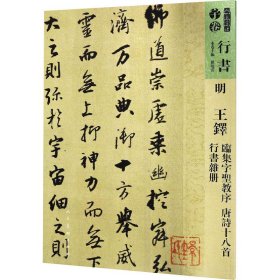 行書
明
王鐸
臨集字聖教序 唐詩十八首
行書雜册
佛道崇虛乘幽控寂弘
濟万品典御十方舉威
靈而無上抑神力而無下
大之則弥於宇宙細之則